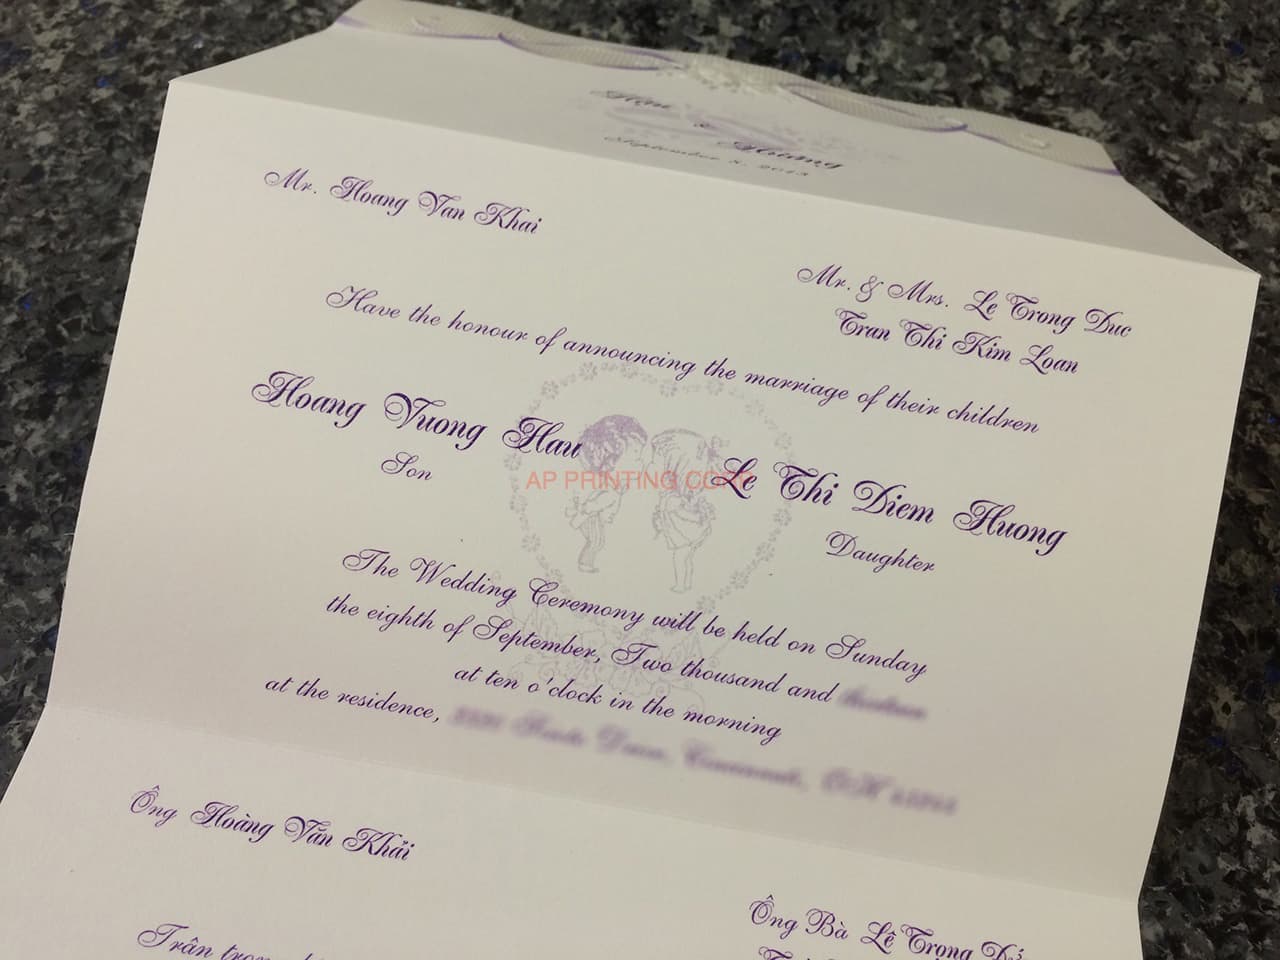 Hau
&
Huong
September 8, 2013
Mr. Hoang Van Khai
Mr. & Mrs. Le Trong Duc
Tran Thi Kim Loan
Have the honour of announcing the marriage of their children
Hoang Vuong Hau
Son
AP PRINTING CORP
Le Thi Diem Huong
Daughter
The Wedding Ceremony will be held on Sunday
the eighth of September, Two thousand and
at ten o'clock in the morning
at the residence,
Ông Hoàng Văn Khải
Ông Bà Lê Trọng
Trân trọng